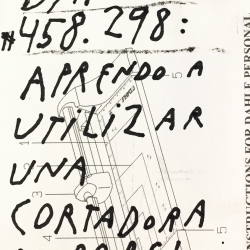 #458.298:
APRENDO A
UTILIZAR
UNA
CORTADORA
5
4
3
1
5
CTIONS FOR DAHLE PERSONAL